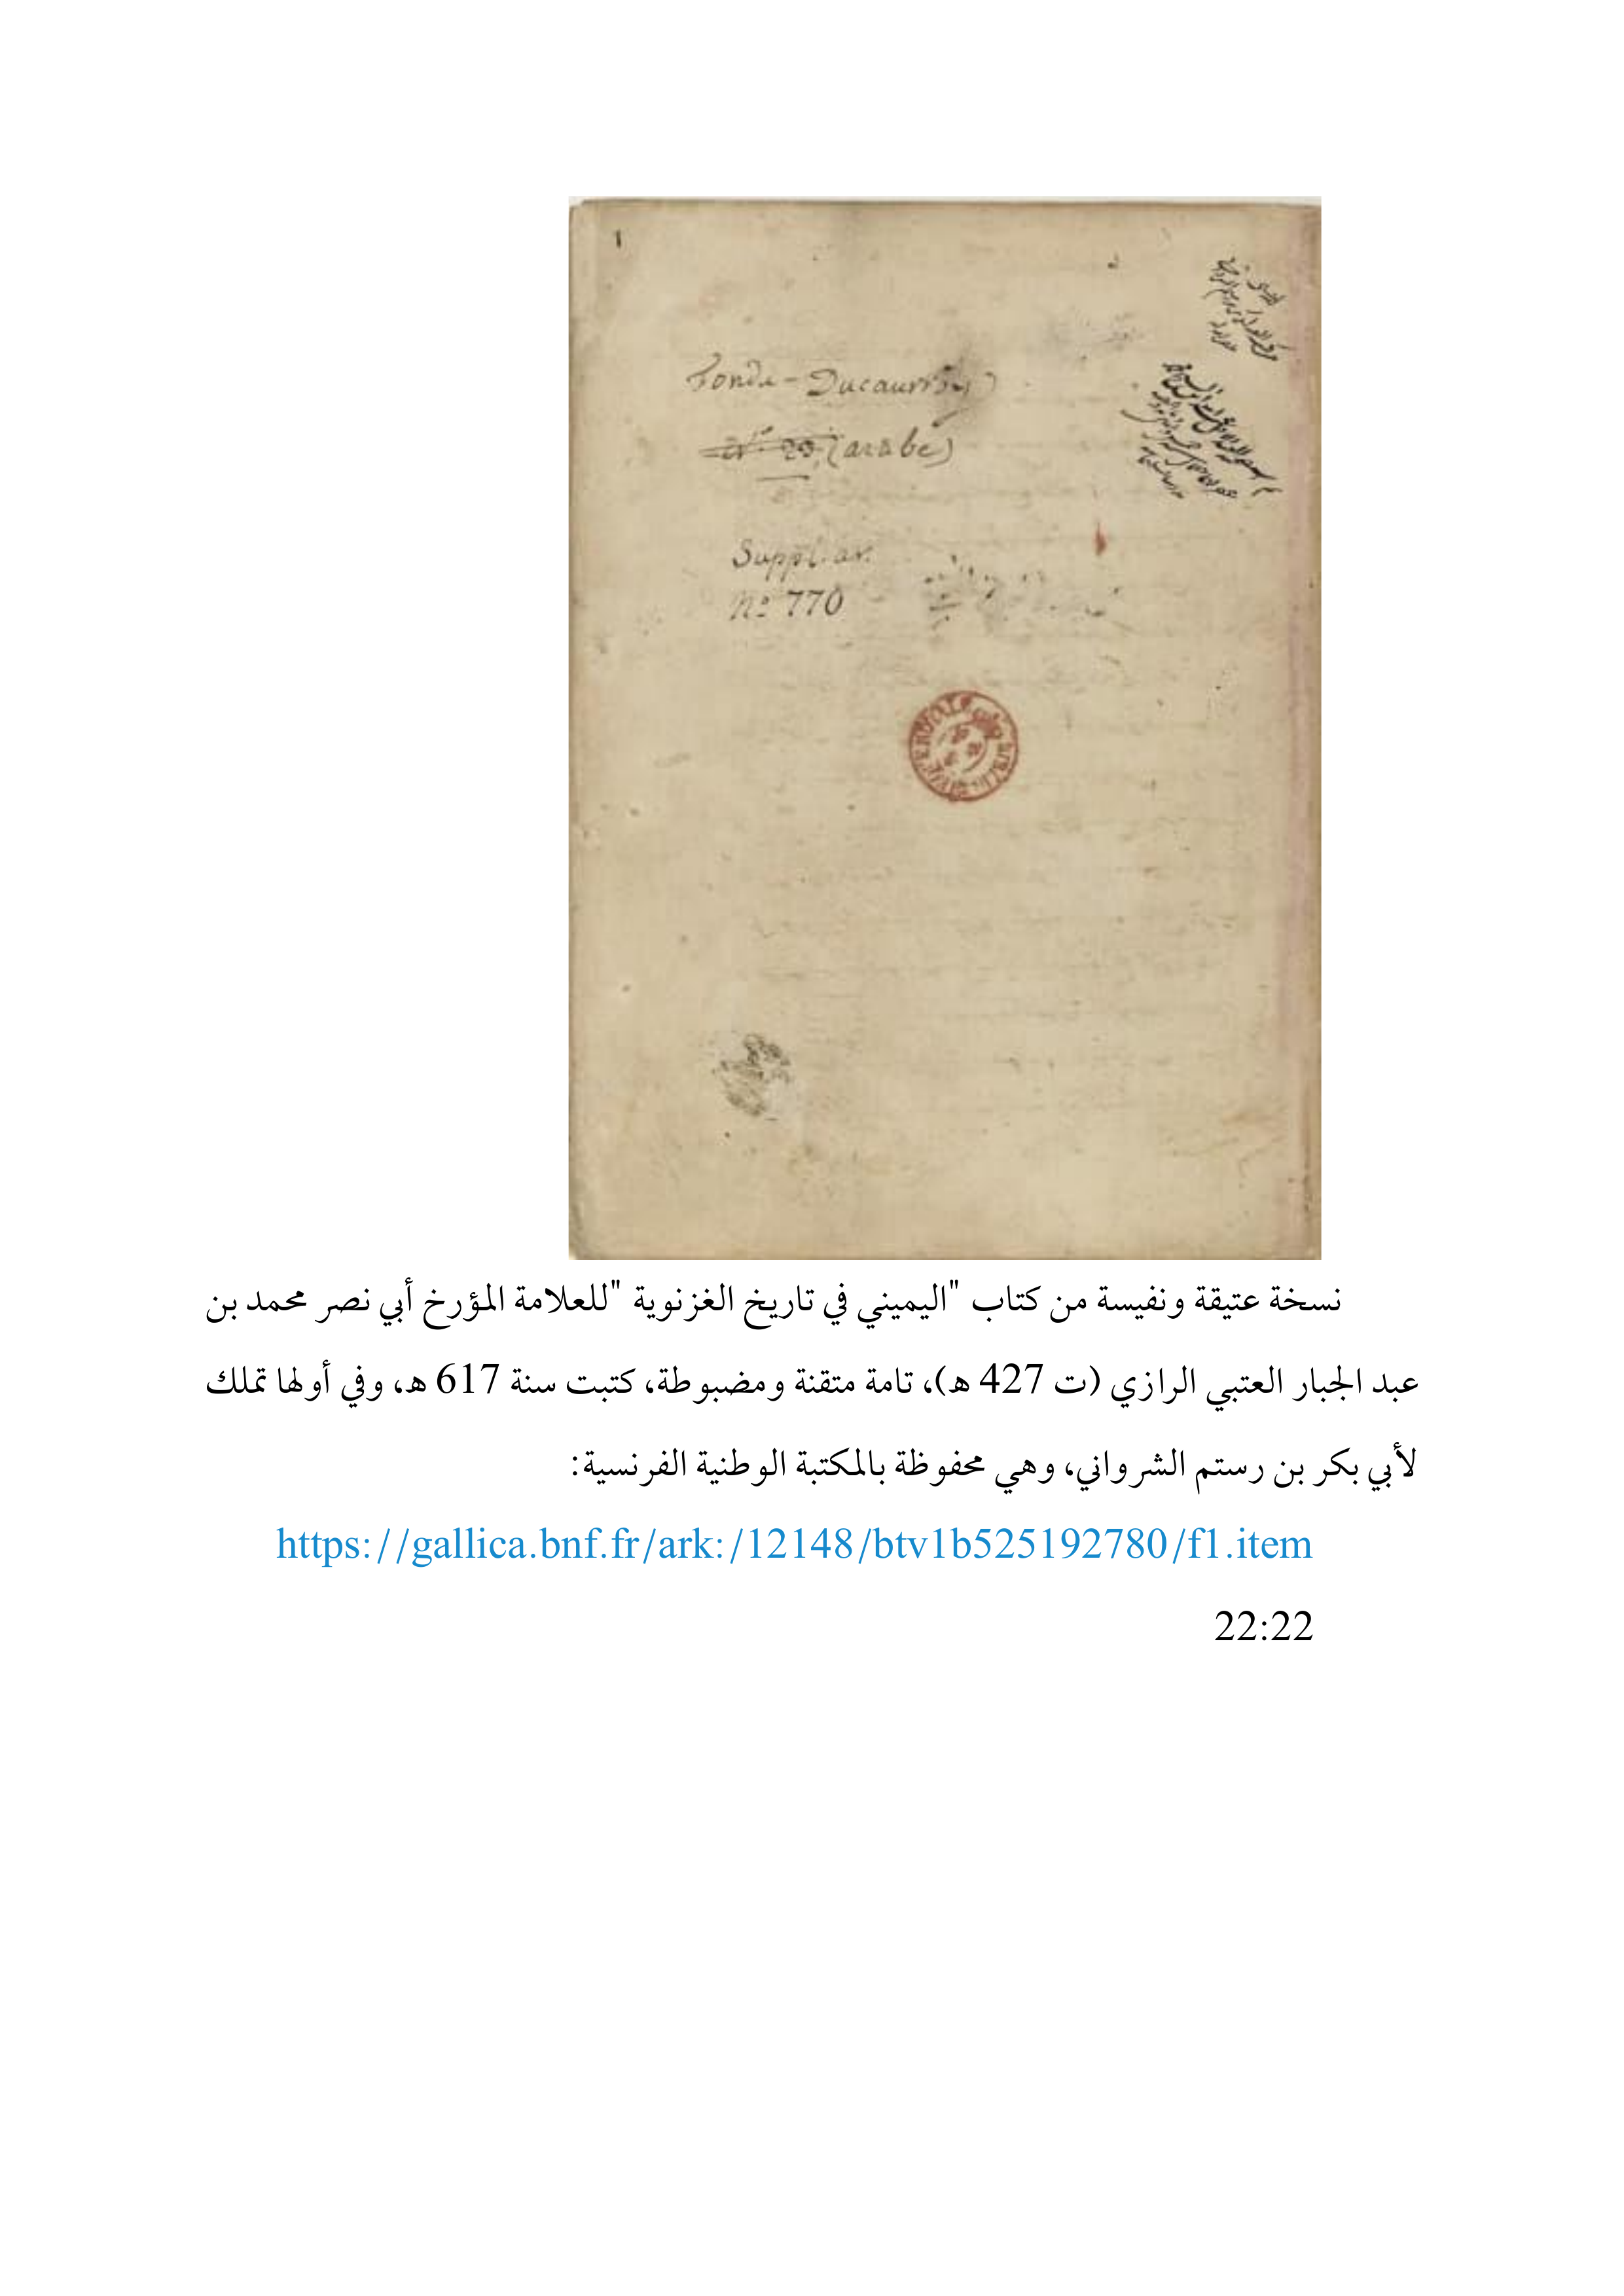 1
Fonds-Ducaurroy
n° 23 (arabe)
Suppl. ar.
N° 770
نسخة عتيقة ونفيسة من كتاب "اليميني في تاريخ الغزنوية "للعلامة المؤرخ أبي نصر محمد بن
عبد الجبار العتبي الرازي (ت 427 هـ)، تامة متقنة ومضبوطة، كتبت سنة 617 هـ، وفي أولها تملك
لأبي بكر بن رستم الشرواني، وهي محفوظة بالمكتبة الوطنية الفرنسية:
https://gallica.bnf.fr/ark:/12148/btv1b525192780/f1.item
22:22